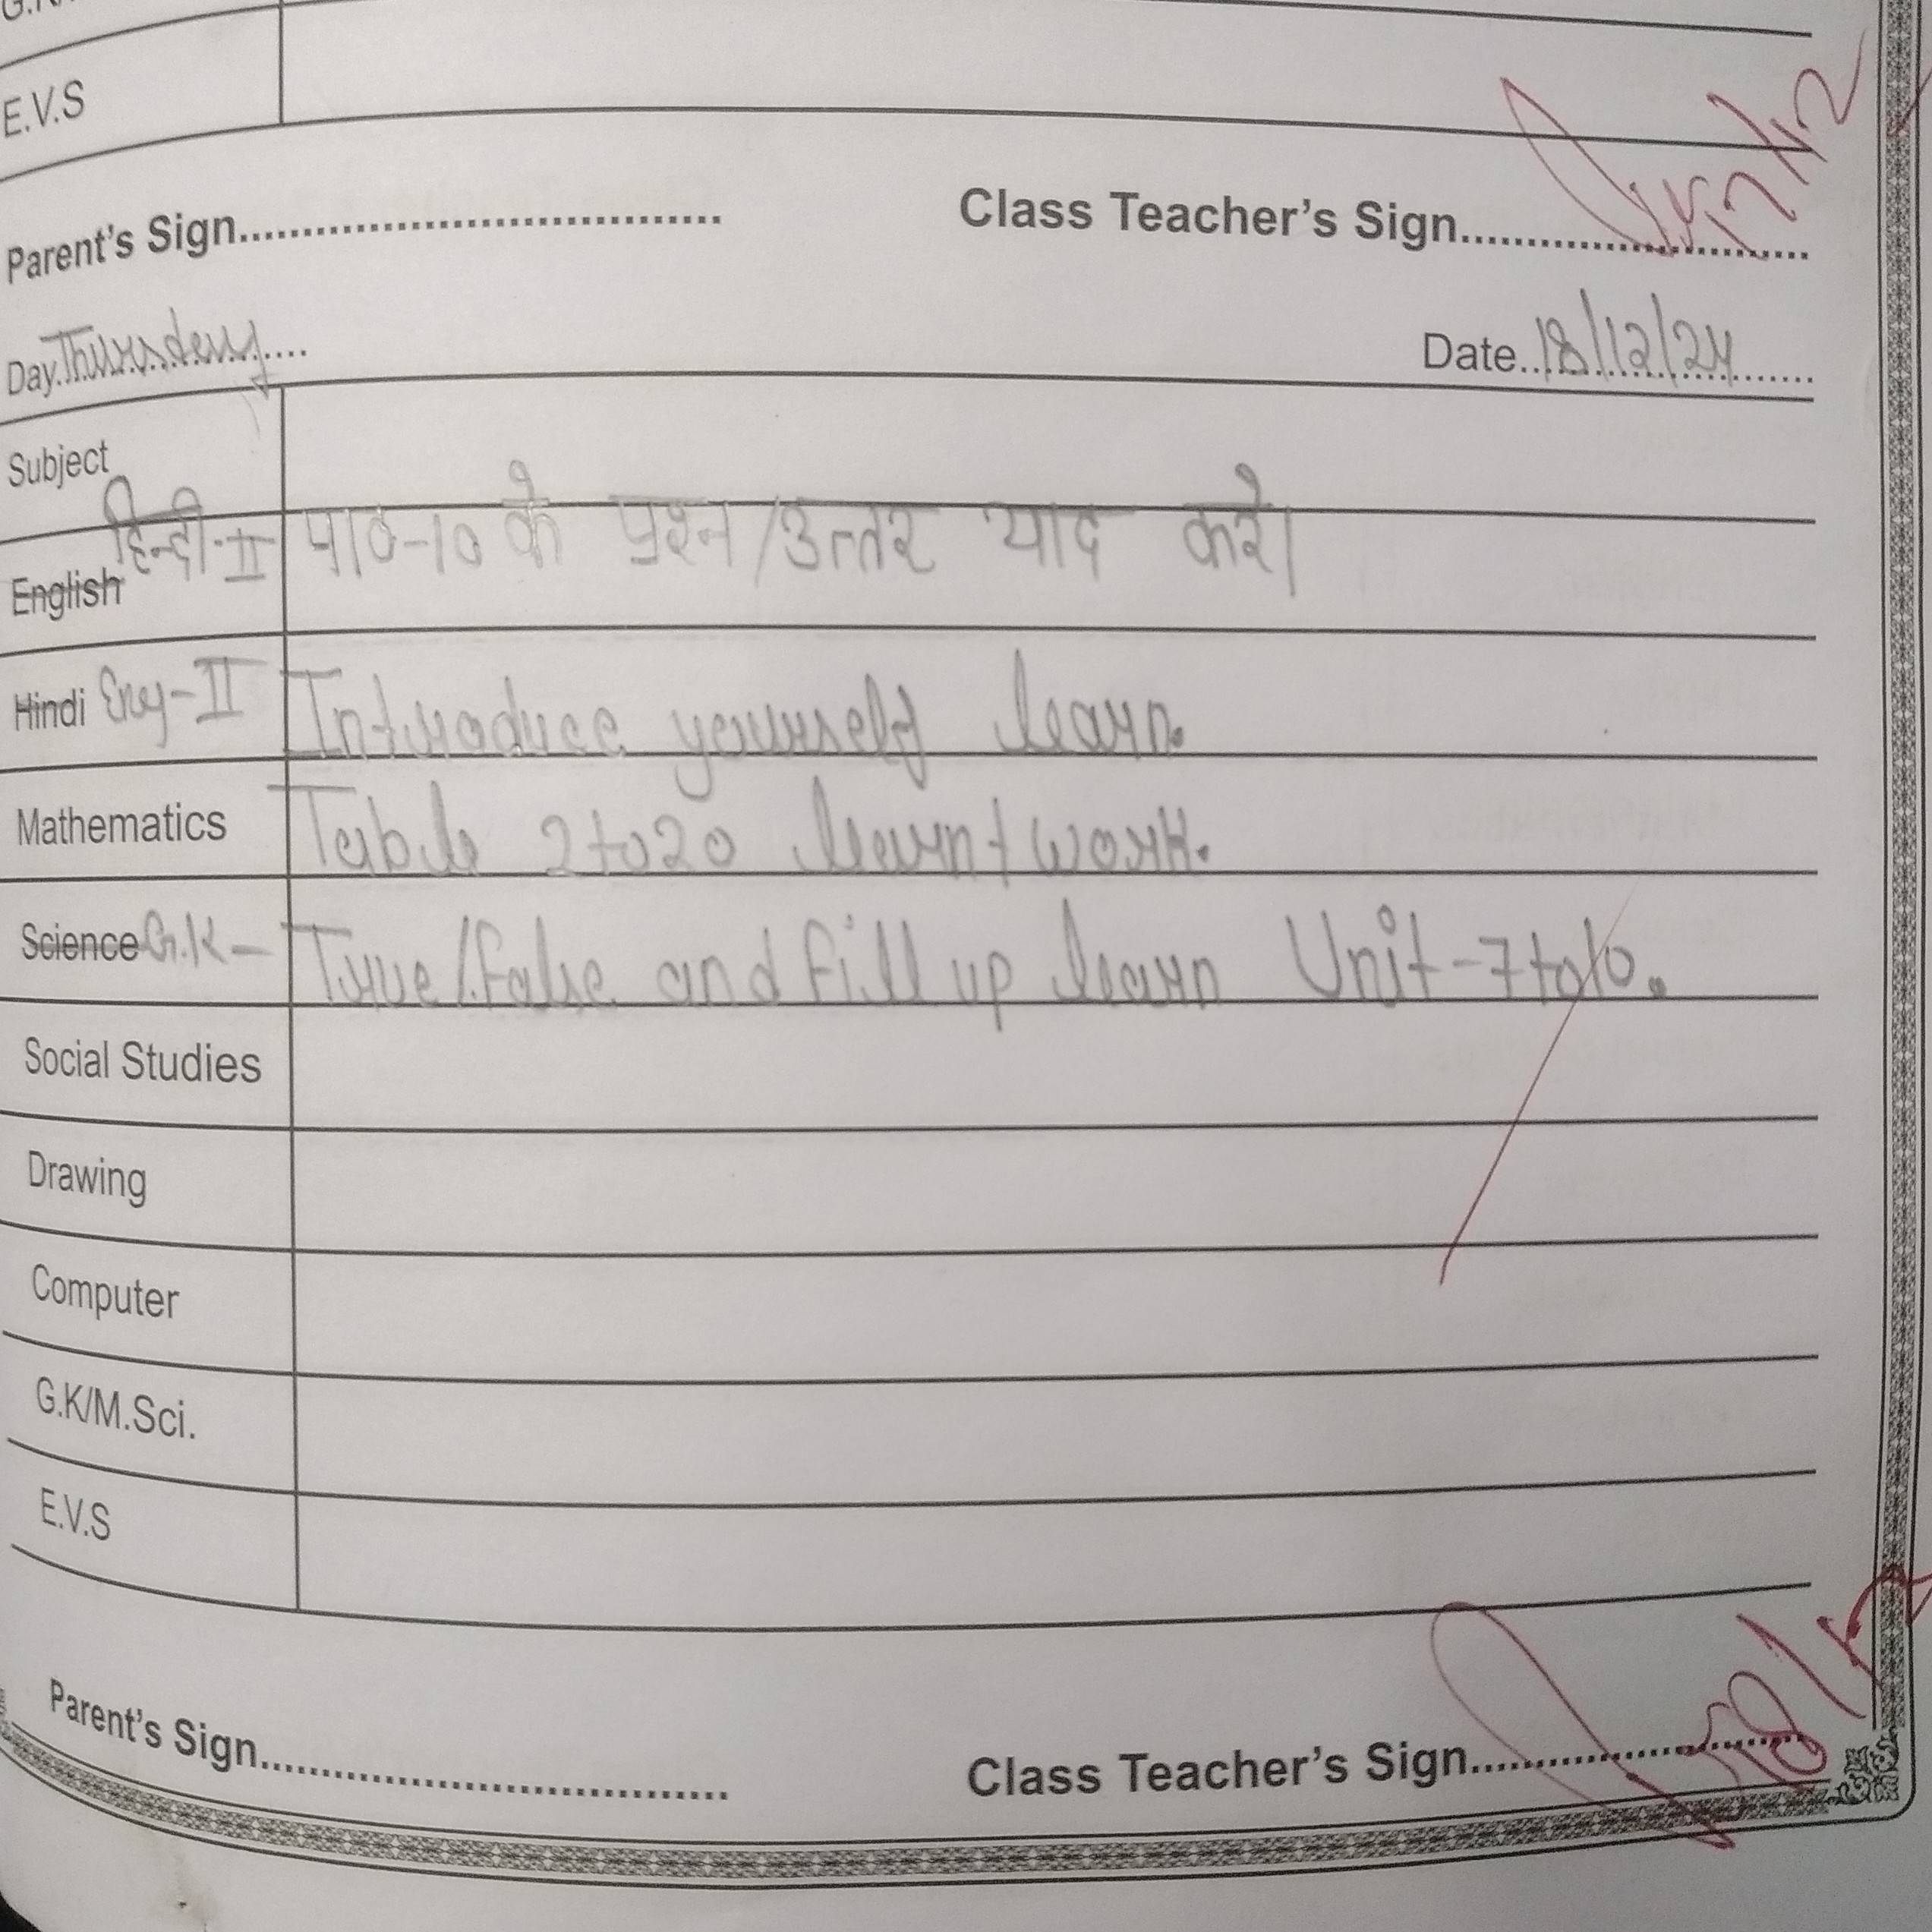 E.V.S
Parent's Sign........................................ Class Teacher's Sign........................ 17/12
Day.Thursday.... Date..18/12/24.......
Subject
English हिन्दी-II पाठ-10 के प्रश्न/उत्तर याद करे।
Hindi Eng-II Introduce yourself learn.
Mathematics Table 2 to 20 learn+work.
Science G.K- True/False and fill up learn Unit-7 to 10.
Social Studies
Drawing
Computer
G.K/M.Sci.
E.V.S
Parent's Sign........................................ Class Teacher's Sign........................ 18/12